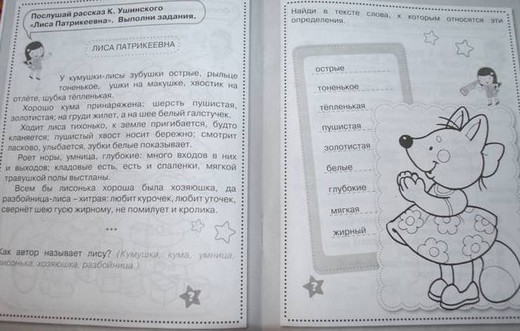 Послушай рассказ К. Ушинского
«Лиса Патрикеевна». Выполни задания.
ЛИСА ПАТРИКЕЕВНА
У кумушки-лисы зубушки острые, рыльце
тоненькое, ушки на макушке, хвостик на
отлёте, шубка тёпленькая.
Хорошо кума принаряжена: шерсть пушистая,
золотистая; на груди жилет, а на шее белый галстучек.
Ходит лиса тихонько, к земле пригибается, будто
кланяется; пушистый хвост носит бережно; смотрит
ласково, улыбается, зубки белые показывает.
Роет норы, умница, глубокие: много входов в них
и выходов; кладовые есть, есть и спаленки, мягкой
травушкой полы выстланы.
Всем бы лисонька хороша была хозяюшка, да
разбойница-лиса – хитрая: любит курочек, любит уточек,
свернёт шею гусю жирному, не помилует и кролика.
***
Как автор называет лису? (Кумушка, кума, умница,
лисонька, хозяюшка, разбойница.)
?
Найди в тексте слова, к которым относятся эти
определения.
острые
тоненькое
тёпленькая
пушистая
золотистая
белые
глубокие
мягкая
жирный
?